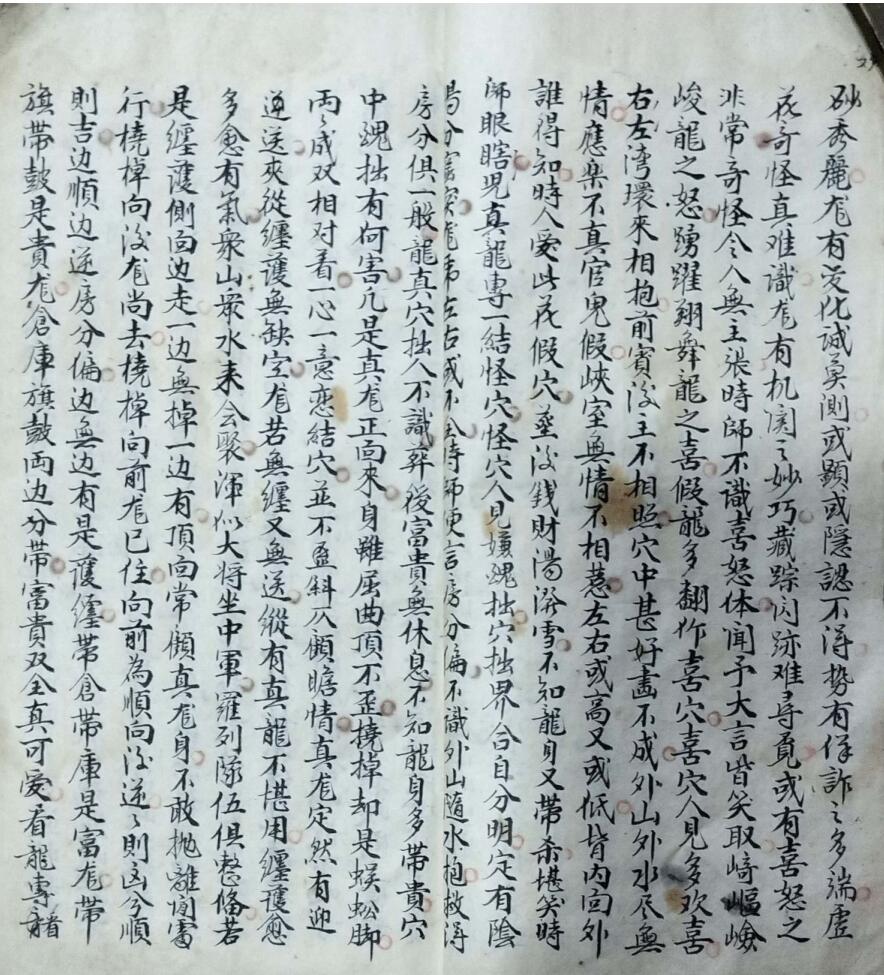 砂秀麗龙有变化诚莫測或顯或隱認不得势有佯詐之多端虚
花奇怪真难識龙有机関之妙巧藏踪闪跡难寻覓或有喜怒之
非常奇怪令人無主張時師不識喜怒体闻予大言皆笑取崎嶇嶮
峻龍之怒踴躍翔舞龍之喜假龍多翻作喜穴喜穴人見多欢喜
右左湾環來相抱前賓後主不相照穴中甚好畵不成外山外水尽無
情應楽不真官鬼假峽室無情不相慈左右或高又或低皆内向外
誰得知時人爱此花假穴塟後錢財湯潑雪不知龍身又带杀堪笑時
師眼瞎児真龍專一結怪穴怪穴人見嫌醜拙穴拙界合自分明定有陰
龙左右或不時師便言房分偏不識外山随水抱救得
房分俱一般龍真穴拙人不識葬後富貴無休息不知龍身多帶貴穴
中醜拙有何害凡是真龙正向來身雖屈曲頂不歪橈棹却是蜈蚣脚
両々成双相对着一心一意恋結穴並不歪斜仄顧瞻情真龙定然有迎
迎送夾從纏護無缺空龙若無纏又無送縱有真龍不堪用纏護愈
多愈有氣衆山衆水来会聚渾似大将坐中軍羅列隊伍俱整俻若
是纏護側向边走一边無棹一边有頂向常顧真龙身不敢抛離闻富
行橈棹向後龙尚去橈棹向前龙已住向前為順向後逆々則凶兮順
則吉边順边逆房分偏边無边有是護纏带倉带庫是富龙带
旗带鼓是貴龙倉庫旗鼓両边分带富貴双全真可爱看龍專